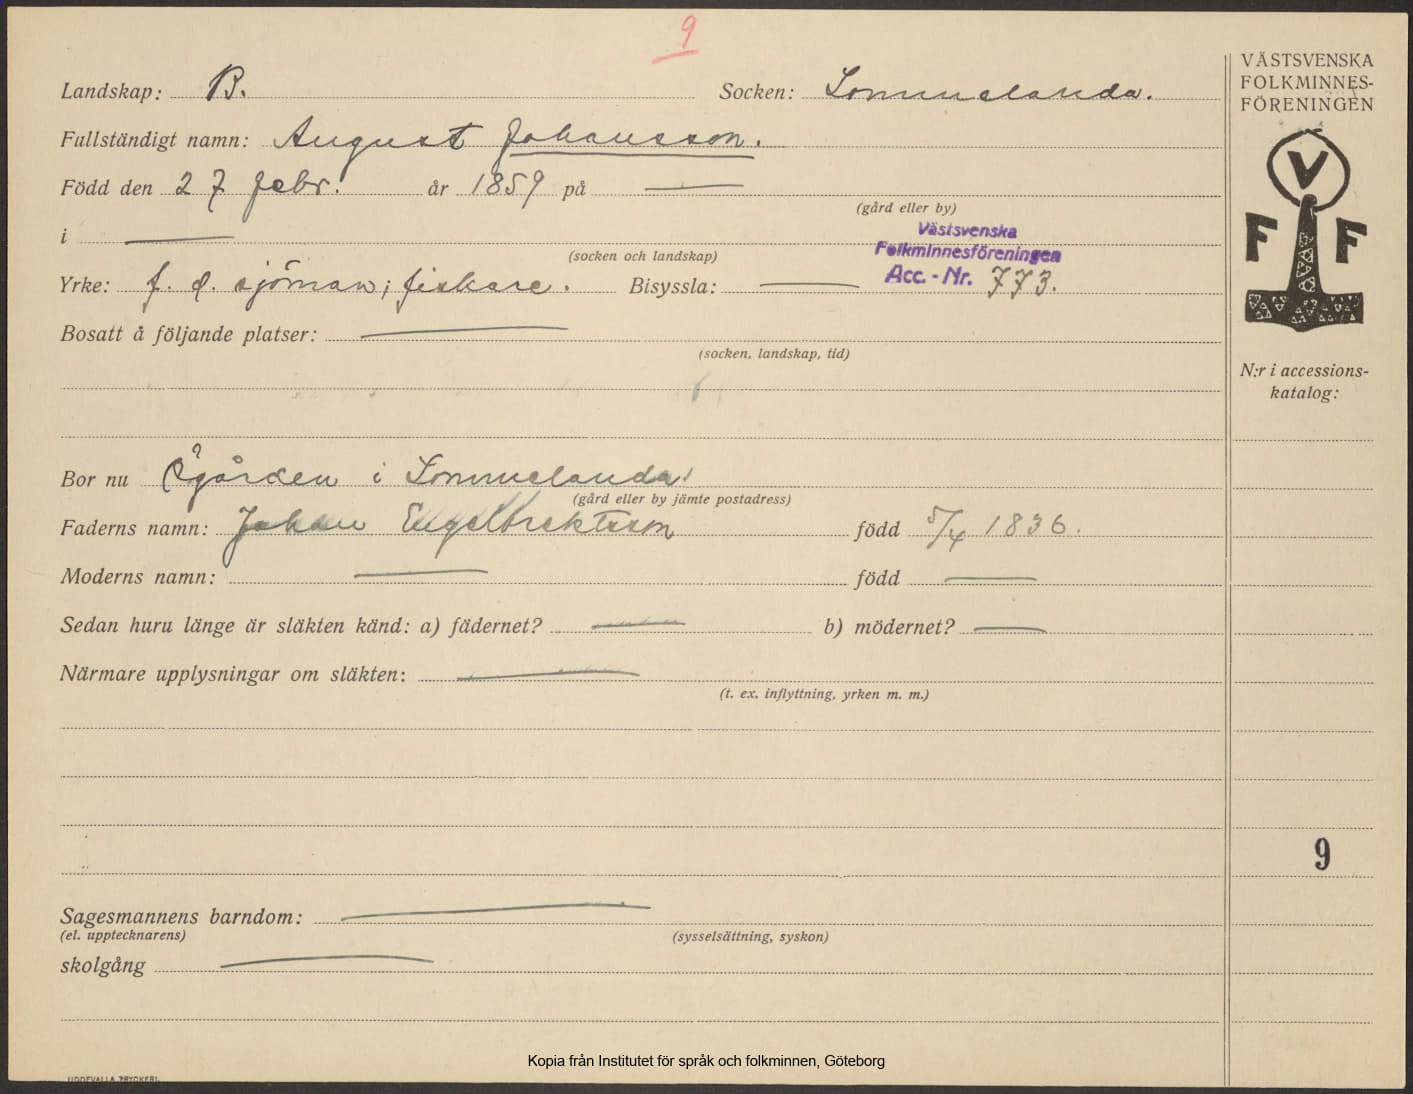 9
VÄSTSVENSKA
FOLKMINNES-
FÖRENINGEN
V
F F
Landskap: B. Socken: Lommelanda.
Fullständigt namn: August Johansson.
Född den 27 febr. år 1859 på —
(gård eller by)
i —
(socken och landskap)
Västsvenska
Folkminnesföreningen
Acc. - Nr. 773.
Yrke: f. d. sjöman; fiskare. Bisyssla: —
Bosatt å följande platser: —
(socken, landskap, tid)
N:r i accessions-
katalog:
Bor nu Ögården i Lommelanda
(gård eller by jämte postadress)
Faderns namn: Johan Engelbrektsson född 5/4 1836.
Moderns namn: — född —
Sedan huru länge är släkten känd: a) fädernet? — b) mödernet? —
Närmare upplysningar om släkten: —
(t. ex. inflyttning, yrken m. m.)
9
Sagesmannens barndom: —
(el. upptecknarens) (sysselsättning, syskon)
skolgång —
Kopia från Institutet för språk och folkminnen, Göteborg
UDDEVALLA TRYCKERI.